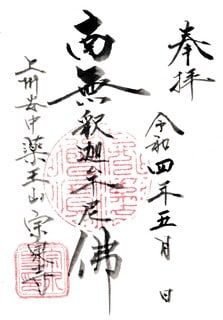 奉拝
令和四年五月 日
南無釈迦牟尼佛
上州安中薬王山宗泉寺